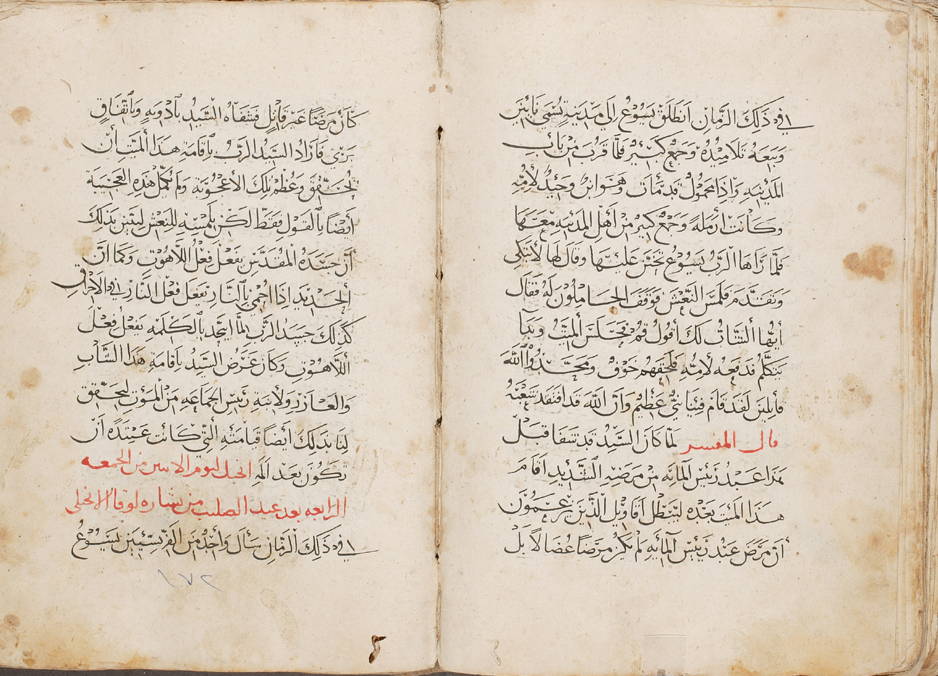 في ذلك الزمان انطلق يسوع إلى مدينة تسمى نايين
وتبعه تلاميذه وجمع كبير فلما قرب من باب
المدينه واذا محمول قد مات هو ابن وحيد لامه
وكانت ارمله وجمع كبير من اهل المدينه معها
فلما رآها الرب يسوع تحنن عليها وقال لها لا تبكي
وتقدم فلمس النعش فوقف الحاملون له فقال
ايها الشاب لك اقول قم فجلس الميت وبدا
يتكلم فدفعه لامه فلحقهم خوف ومجدوا الله
قايلين لقد قام فينا نبي عظيم وان الله قد افتقد شعبه
قال المفسر لما كان السيد قد شفا قبل
هذا عبد رئيس المايه من مرضه الشديد اقام
هذا الميت بعده ليبطل اقاويل الذين يزعمون
ان مرض عبد رئيس المايه لم يكن مرضا عضالا بل
كان مرضا غير قاتل فشفاه السيد بادويه وباتفاق
بري فازاد السيد الرب باقامة هذا الميت ان
تحقق وعظم تلك الاعجوبه ولم يكمل هذه العجيبة
ايضا بالقول فقط لكن بلمسه للنعش ليتبين بذلك
ان جسده المقدس يفعل فعل اللاهوت وكما ان
الحديد اذا احمي بالنار يفعل فعل النار في الاحراق
كذلك جسد الرب لما اتحد بالكلمه يفعل فعل
اللاهوت وكان غرض السيد باقامة هذا الشاب
والعازر ولابنة رئيس الجماعه من الموت ليحقق
لنا بذلك ايضا قيامته التي كانت عتيدة ان
تكون بعد الم انجيل ليوم الاثنين من الجمعه
الرابعه بعد عيد الصليب من بشاره لوقا الانجيلي
في ذلك الزمان سأل واحد من الفريسيين يسوع
١٧٢